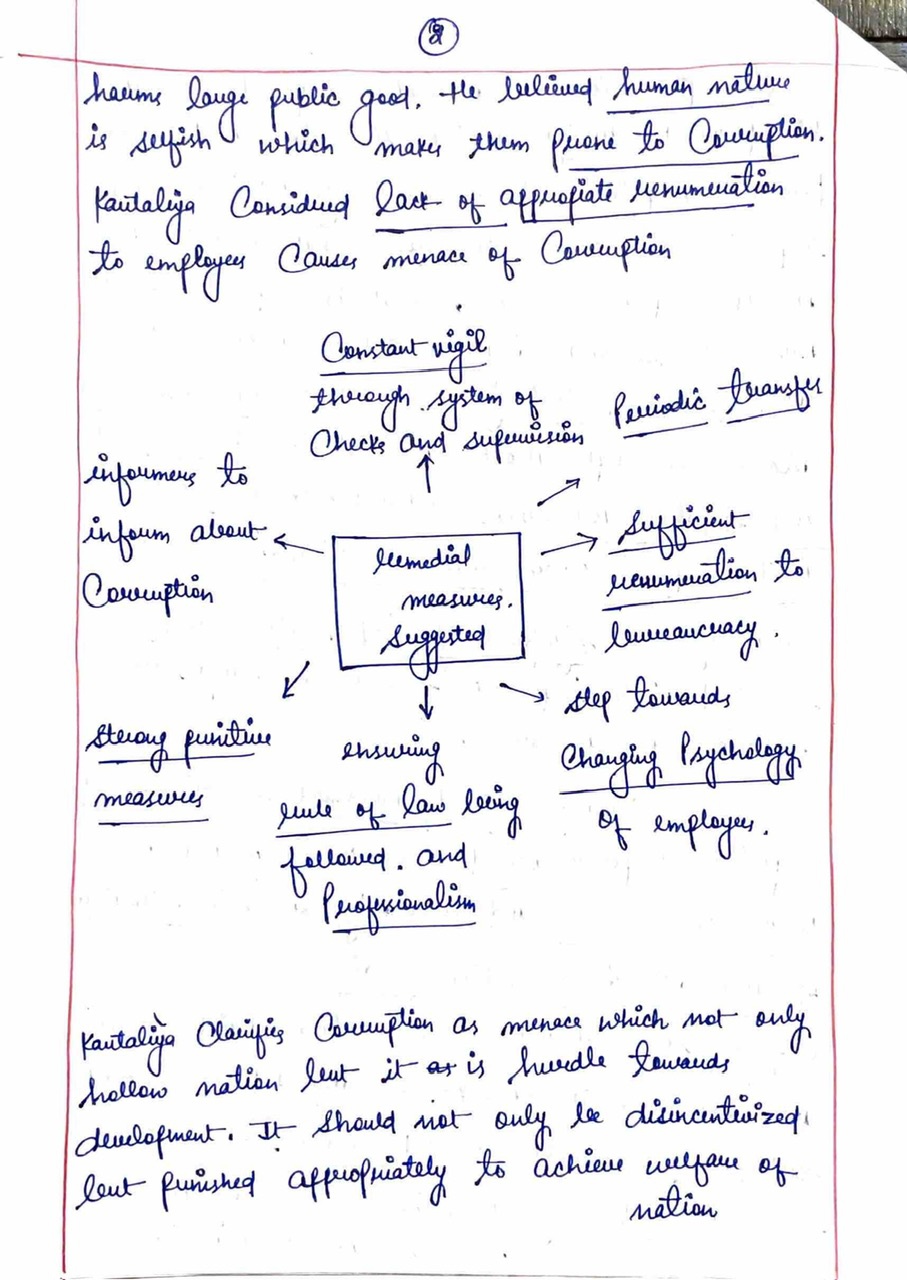 2
harms large public good. He believed human nature
is selfish which makes them prone to Corruption.
Kautaliya Considred lack of appropiate renumeration
to employees Causes menace of Corruption
Constant vigil
through system of
Checks and supervision
Periodic transfer
informers to
inform about
Corruption
Remedial
measures.
Suggested
Sufficient
renumeration to
bureaucracy.
Strong punitive
measures
ensuring
rule of law being
followed. and
Professionalism
step towards
Changing Psychology
of employees.
Kautaliya Clarifies Corruption as menace which not only
hollow nation but it as is hurdle towards
development. It should not only be disincentivized
but punished appropriately to achieve welfare of
nation